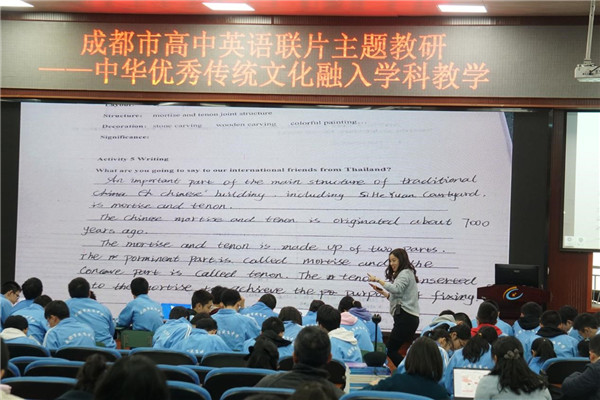 成都市高中英语联片主题教研
——中华优秀传统文化融入学科教学
Structure: mortise and tenon joint structure
Decoration: stone carving wooden carving colorful painting...
Significance:
Activity 5 Writing
What are you going to say to our international friends from Thailand?
An important part of the main structure of traditional
chinese' building, including SiHeYuan Courtyard,
is mortise and tenon.
The Chinese mortise and tenon is originated about 7000
years ago.
The mortise and tenon is made up of two parts.
The prominent part is called mortise and the
Concave part is called tenon. The tenon inserted
to the mortise to achieve the purpose fixing